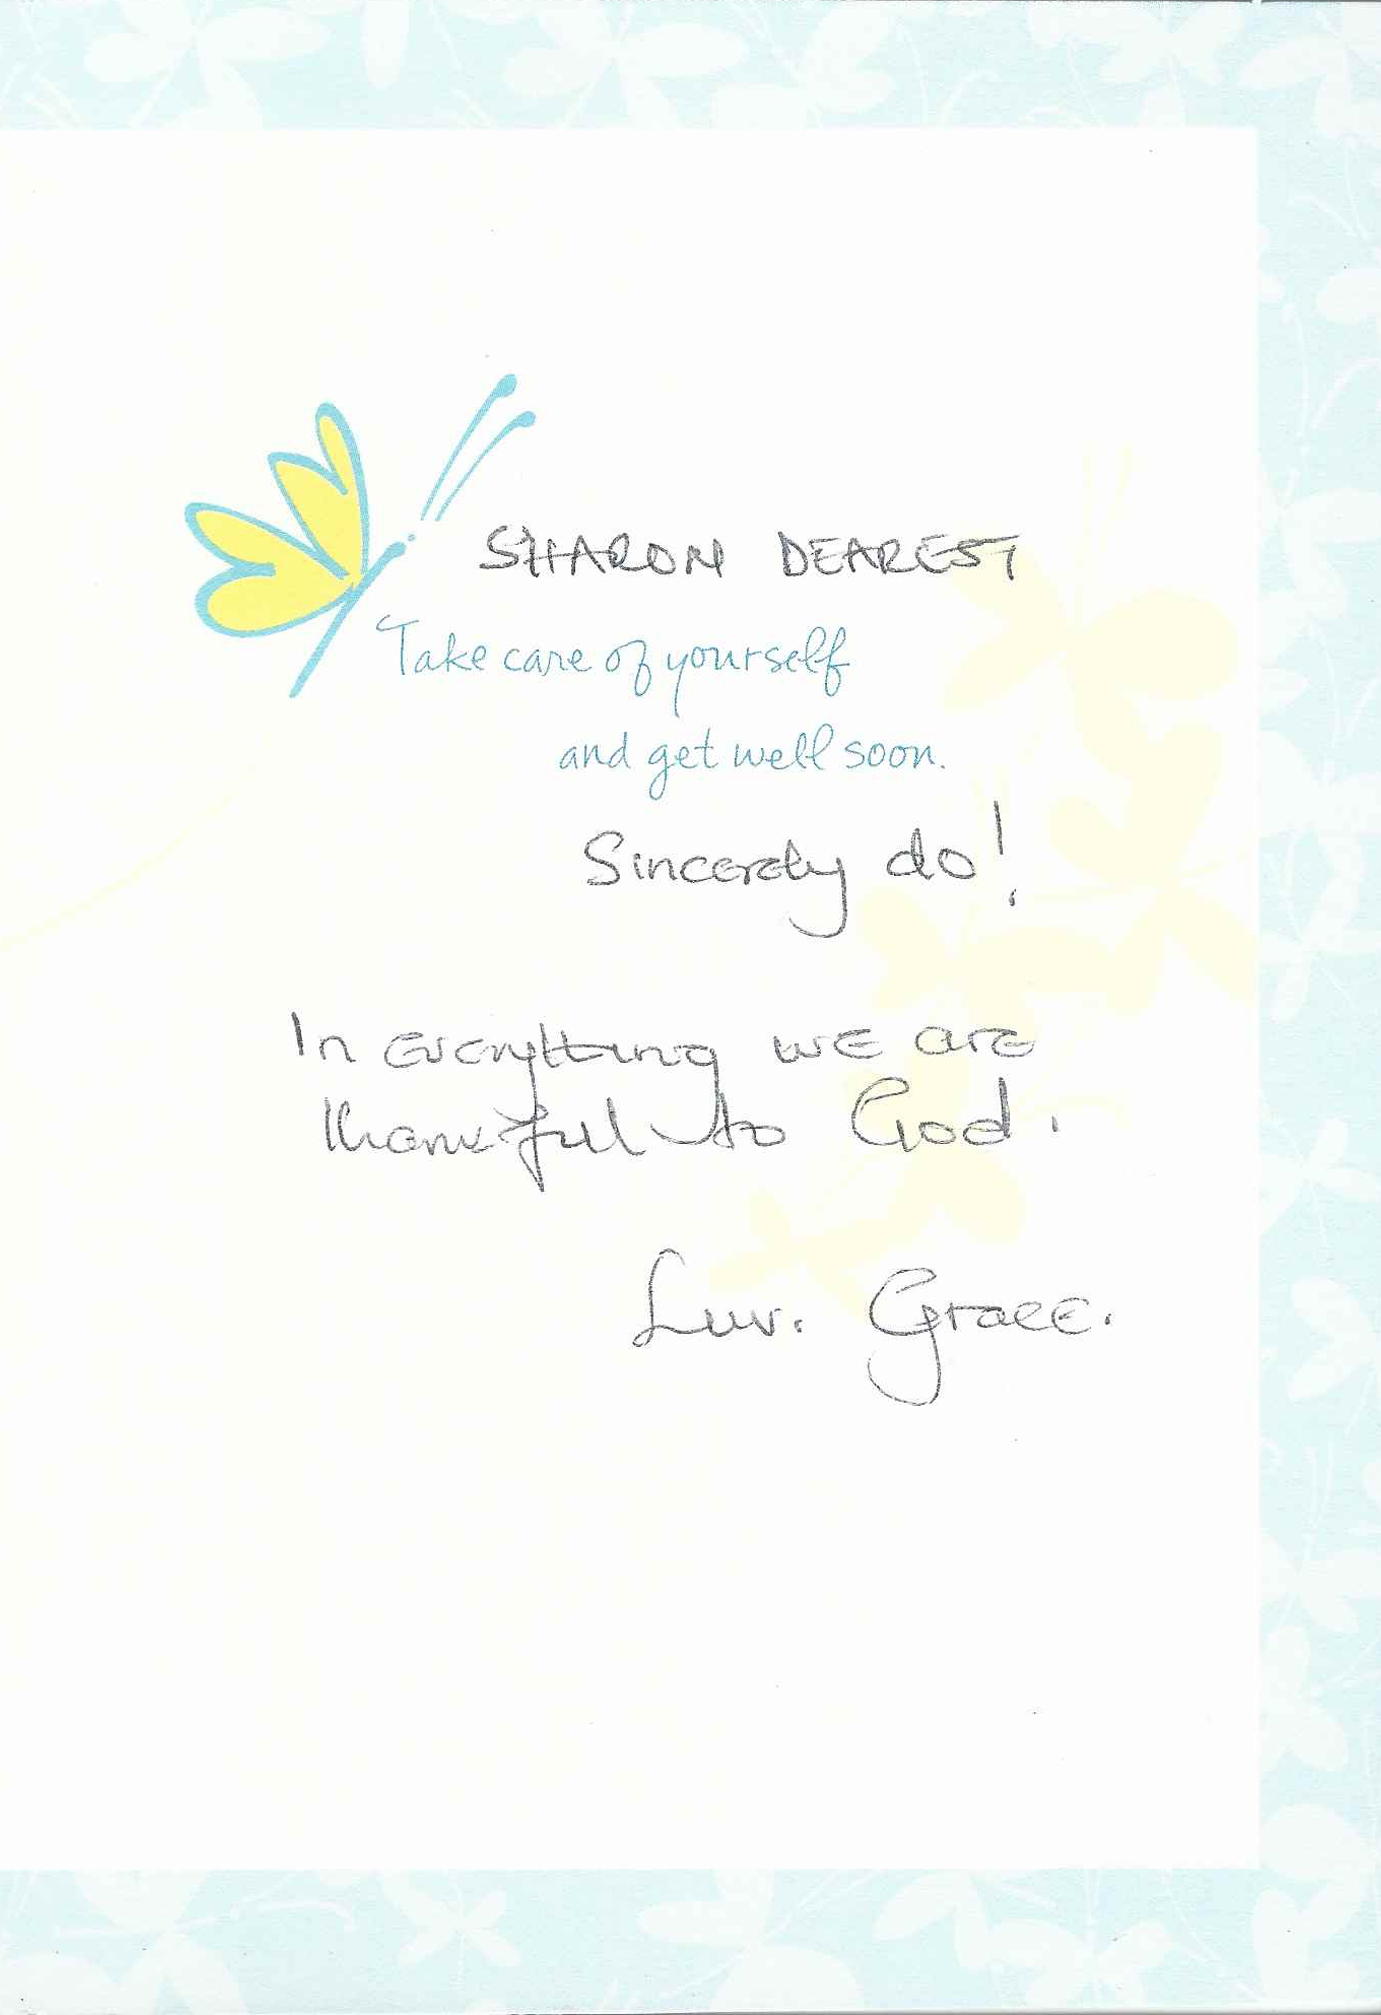 SHARON DEAREST
Take care of yourself
and get well soon.
Sincerely do!
In everything we are
thankful to God.
Luv. Grace.